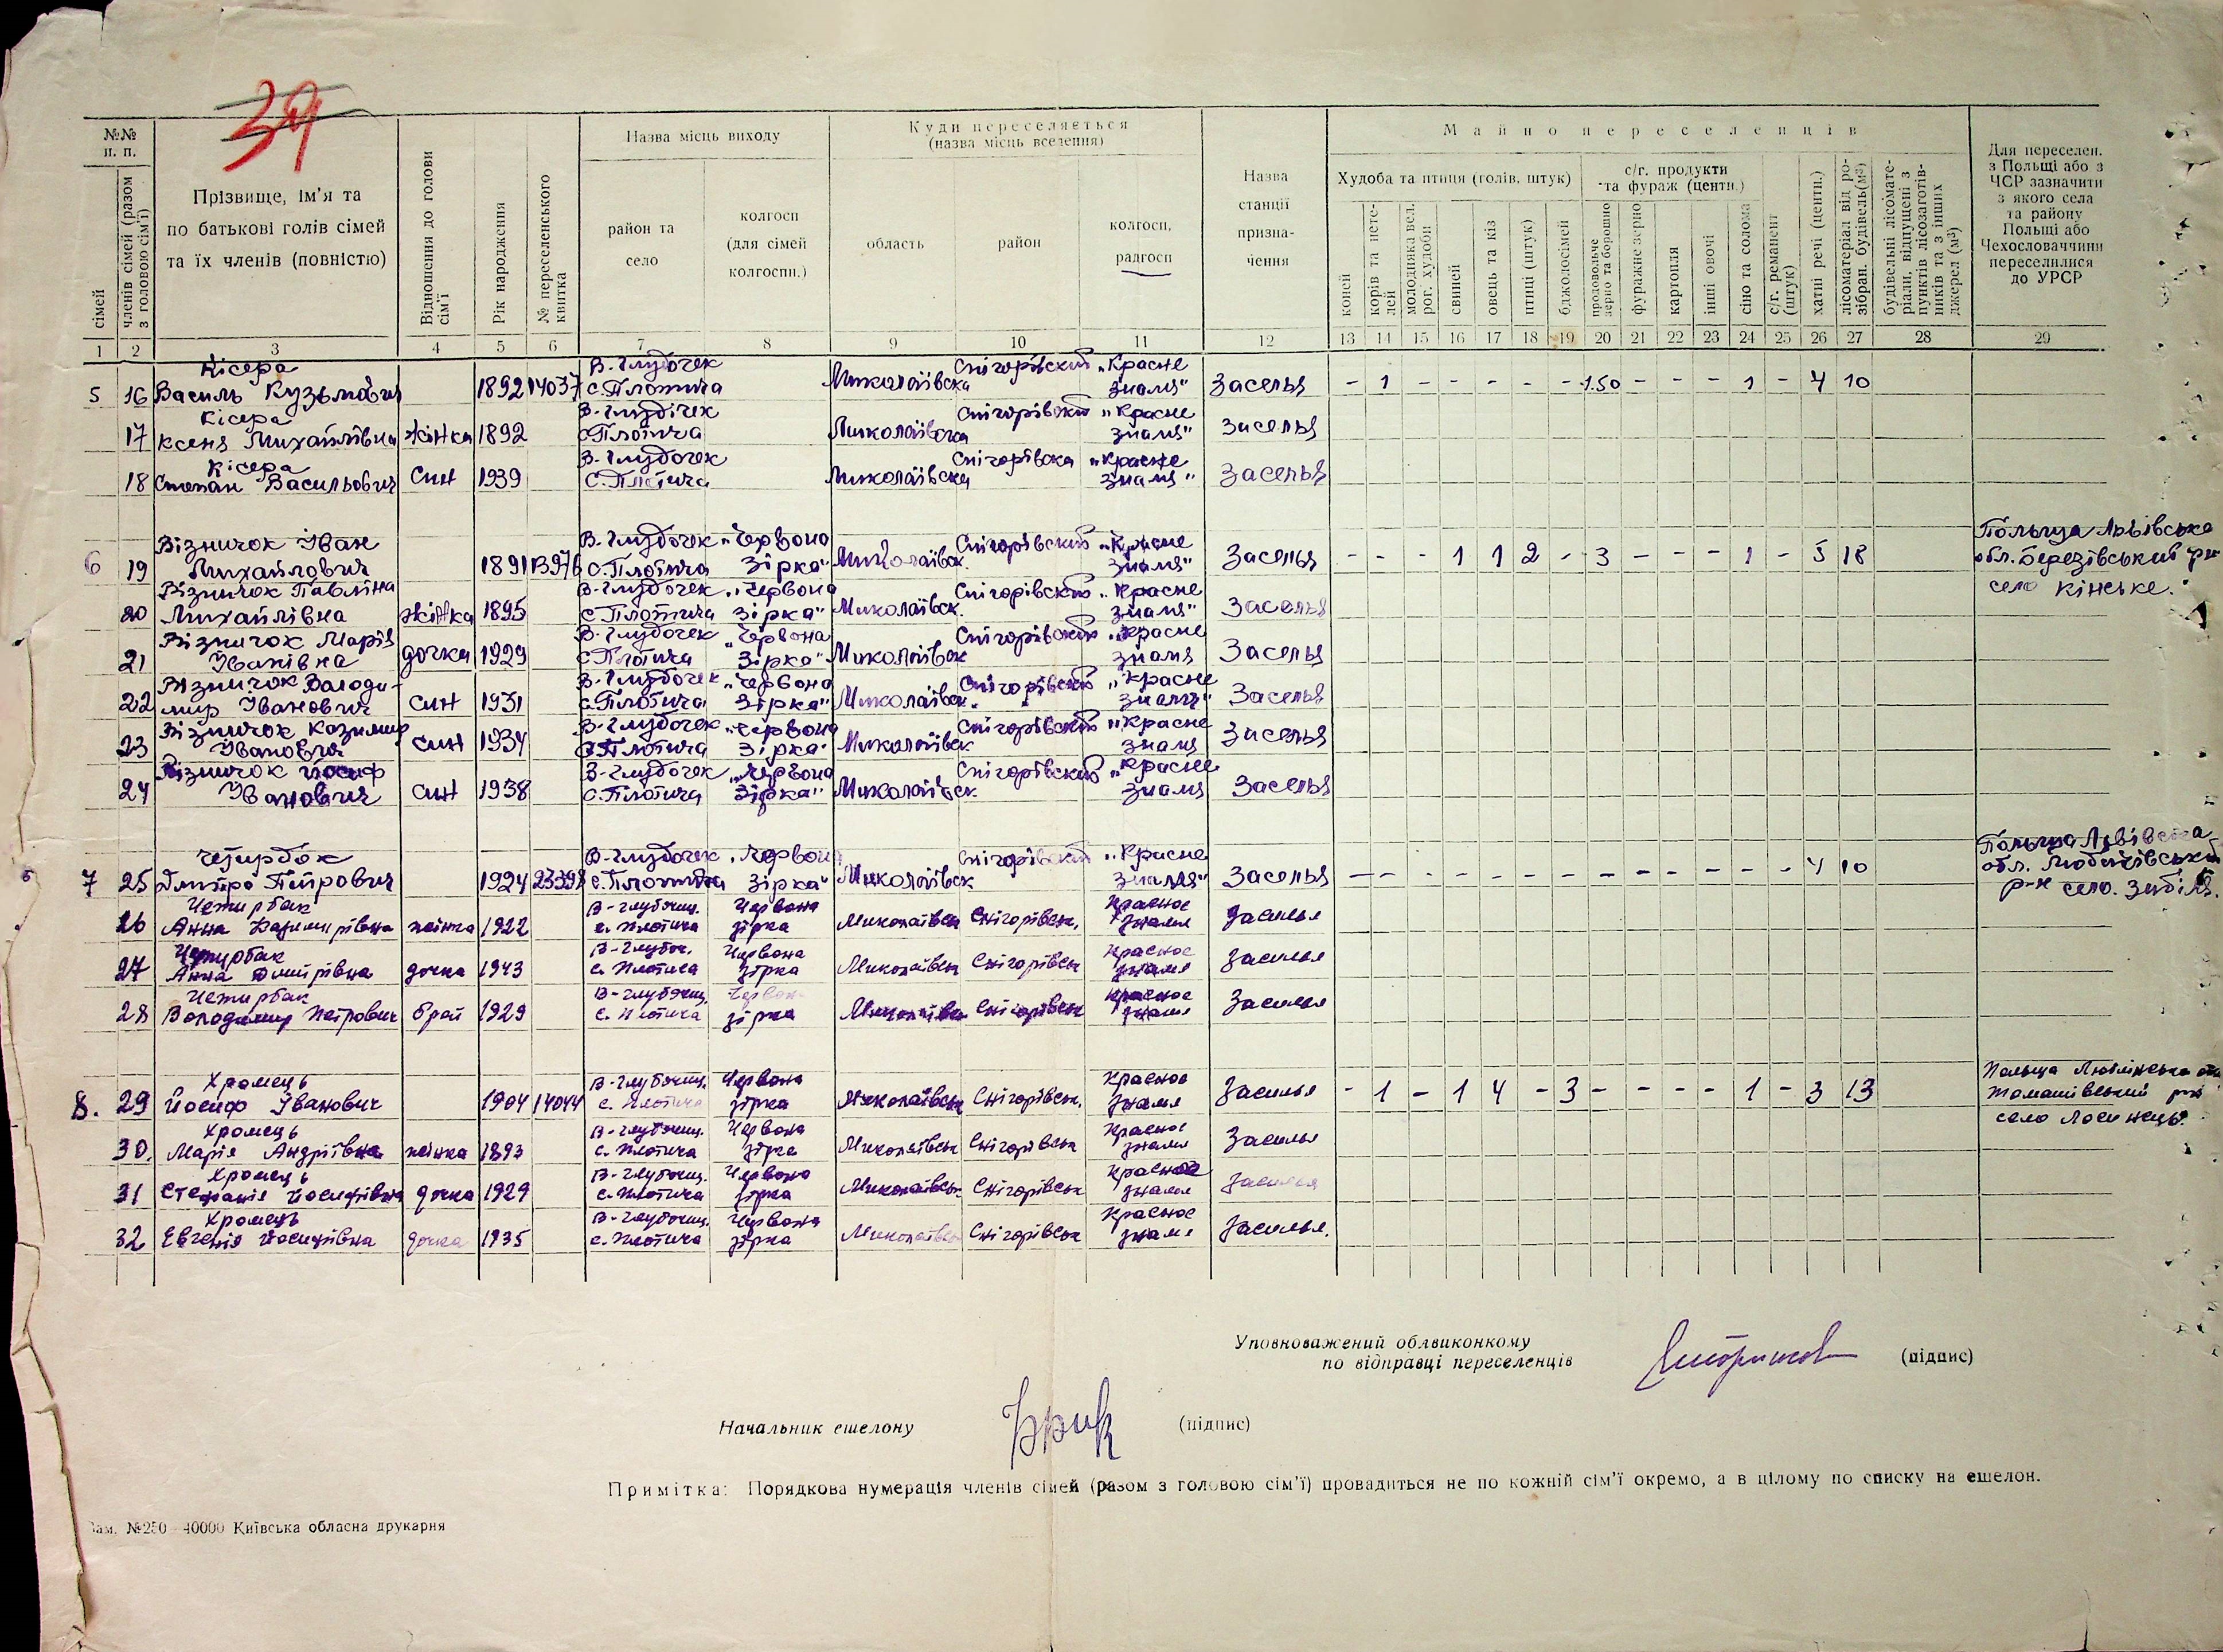 39
№№ п. п.
сімей
членів сімей (разом з головою сім'ї)
Прізвище, ім'я та
по батькові голів сімей
та їх членів (повністю)
Відношення до голови сім'ї
Рік народження
№ переселенського квитка
Назва місць виходу
район та село
колгосп (для сімей колгоспн.)
Куди переселяється
(назва місць вселення)
область
район
колгосп, радгосп
Назва станції призна- чення
Майно переселенців
Худоба та птиця (голів, штук)
коней
корів та нете- лей
молодняка вел. рог. худоби
свиней
овець та кіз
птиці (штук)
бджолосімей
с/г. продукти та фураж (центн.)
продовольче зерно та борошно
фуражне зерно
картопля
інші овочі
сіно та солома
с/г. реманент (штук)
хатні речі (центн.)
лісоматеріал від ро- зібран. будівель (м³)
будівельні лісомате- ріали, відпущені з пунктів лісозаготів- ників та з інших джерел (м³)
Для переселен.
з Польщі або з
ЧСР зазначити
з якого села
та району
Польщі або
Чехословаччини
переселилися
до УРСР
1 2 3 4 5 6 7 8 9 10 11 12 13 14 15 16 17 18 19 20 21 22 23 24 25 26 27 28 29
Кісера В. Глубочек Снігорівский „Красне
5 16 Василь Кузьмович 1892 14037 с. Плотича Миколаївска знамя" Заселья - 1 - - - - - 1.50 - - - 1 - 4 10
Кісера В. Глубічек Снігорівский „Красне
17 Ксеня Михайлівна жінка 1892 с. Плотича Миколаївска знамя" Заселья
Кісера В. Глубочек Снігорівска „Красне
18 Степан Васильович син 1939 с. Плотича Миколаївска знамя" Заселья
Візничок Іван В. Глубочек „Червона Снігорівский „Красне Польща Львівська
6 19 Михайлович 1891 13976 с. Плотича Зірка" Миколаївск. знамя" Заселья - - - 1 1 2 - 3 - - - 1 - 5 18 обл. Березівський рн
Візничок Павліна В. Глубочек „Червона Снігорівский „Красне село Кінське.
20 Михайлівна жінка 1895 с. Плотича Зірка" Миколаївск. знамя" Заселья
Візничок Марія В. Глубочек „Червона Снігорівский „Красне
21 Іванівна дочка 1929 с. Плотича Зірка" Миколаївск знамя Заселья
Візничок Володи- В. Глубочек „Червона Снігорівский „Красне
22 мир Іванович син 1931 с. Плотича Зірка" Миколаївск. знамя" Заселья
Візничок Казимир В. Глубочек „Червона Снігорівский „Красне
23 Іванович син 1934 с. Плотича Зірка" Миколаївск знамя Заселья
Візничок Йосиф В. Глубочек „Червона Снігорівский „Красне
24 Іванович син 1938 с. Плотича Зірка" Миколаївск. знамя Заселья
Четирбок В. Глубочек „Червона Снігорівский „Красне Польща Львівська
7 25 Дмитро Петрович 1924 23398 с. Плотича Зірка" Миколаївск знамя" Заселья - - - - - - - - - - - - - 4 10 обл. Любачівський
р-н село.
Четирбак В-Глубочиц. Червона Красное
26 Анна Казимирівна жінка 1922 с. Плотича зірка Миколаївськ Снігорівськ. знамя Заселья
Четирбак В-Глубоч. Червона Красное
27 Анна Дмитрівна дочка 1943 с. Плотича зірка Миколаївськ Снігорівськ знамя Заселья
Четирбак В-Глубочиц. Червон. Красное
28 Володимир Петрович брат 1929 с. Плотича зірка Миколаївськ Снігорівськ знамя Заселья
Хромець В-Глубочиц. Червона Красное Польща Люблінська обл
8. 29 Йосиф Іванович 1904 14044 с. Плотича зірка Миколаївськ Снігорівськ. знамя Заселья - 1 - 1 4 - 3 - - - - 1 - 3 13 Томашівський р-н
Хромець В-Глубочиц. Червона Красное село Лосинець
30. Марія Андріївна жінка 1893 с. Плотича зірка Миколаївськ Снігорівськ знамя Заселья
Хромець В-Глубочиц. Червона Красное
31 Стефанія Йосифівна дочка 1929 с. Плотича зірка Миколаївськ Снігорівськ знамя Заселья
Хромець В-Глубочиц. Червона Красное
32 Евгенія Йосифівна дочка 1935 с. Плотича зірка Миколаївськ Снігорівськ знамя Заселья.
Уповноважений облвиконкому
по відправці переселенців (підпис)
Начальник ешелону (підпис)
Примітка: Порядкова нумерація членів сімей (разом з головою сім'ї) провадиться не по кожній сім'ї окремо, а в цілому по списку на ешелон.
Зам. №250 40000 Київська обласна друкарня